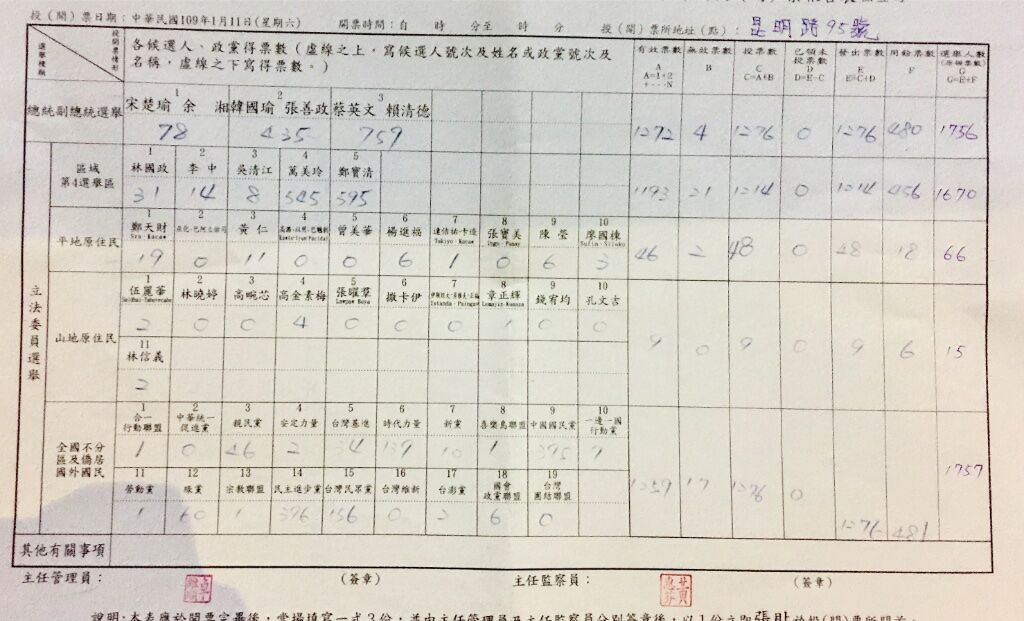 投(開)票日期：中華民國109年1月11日(星期六) 開票時間：自 時 分至 時 分 投(開)票所地址(點)：昆明路95號
選舉種類 投開票情形 各候選人、政黨得票數（虛線之上，寫候選人號次及姓名或政黨號次及名稱，虛線之下寫得票數。） 有效票數 A A=1+2+---N 無效票數 B 投票數 C C=A+B 已領未投票數 D D=E-C 發出票數 E E=C+D 用餘票數 F 選舉人數 G G=E+F
總統副總統選舉 1 2 3
宋楚瑜 余湘 韓國瑜 張善政 蔡英文 賴清德
78 435 759 1272 4 1276 0 1276 480 1756
立法委員選舉
區域第4選舉區 1 2 3 4 5
林國政 李中 吳清江 萬美玲 鄭寶清
31 14 8 545 595 1193 21 1214 0 1214 456 1670
平地原住民 1 2 3 4 5 6 7 8 9 10
鄭天財 黃仁 曾美華 楊進福 達佶祐·卡造 張寶美 陳瑩 廖國棟
Sra·Kacaw Takiyo·Kacaw Sufin·Siluko
19 0 11 0 0 6 1 0 6 3 46 2 48 0 48 18 66
山地原住民 1 2 3 4 5 6 7 8 9 10
伍麗華 林曉婷 高晼芯 高金素梅 張曜羣 撒卡伊 章正輝 錢宥均 孔文吉
2 0 0 4 0 0 0 1 0 0 9 0 9 0 9 6 15
11
林信義
2
全國不分區及僑居國外國民 1 2 3 4 5 6 7 8 9 10
合一行動聯盟 中華統一促進黨 親民黨 安定力量 台灣基進 時代力量 新黨 喜樂島聯盟 中國國民黨 一邊一國行動黨
1 0 46 2 34 139 10 1 395
11 12 13 14 15 16 17 18 19
勞動黨 綠黨 宗教聯盟 民主進步黨 台灣民眾黨 台灣維新 台澎黨 國會政黨聯盟 台灣團結聯盟
1 60 1 396 156 0 2 6 0 1259 17 1276 0 1276 481 1757
其他有關事項
主任管理員： (簽章) 主任監察員： (簽章)
說明：本表應於開票完畢後，當場填寫一式3份，並由主任管理員及主任監察員分別簽章後，以1份立即張貼於投(開)票所門首，